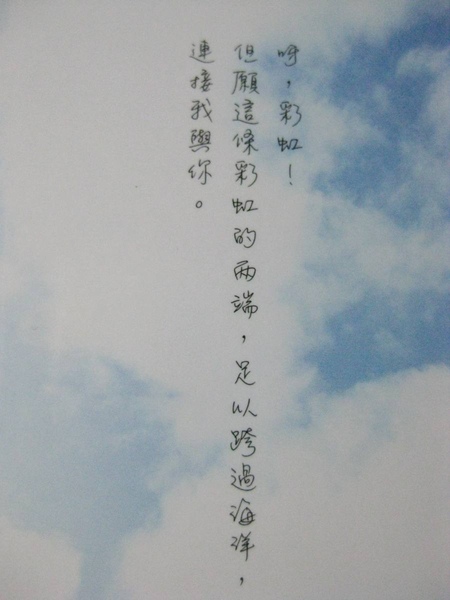 呀，彩虹！
但願這條彩虹的兩端，足以跨過海洋，
連接我與你。